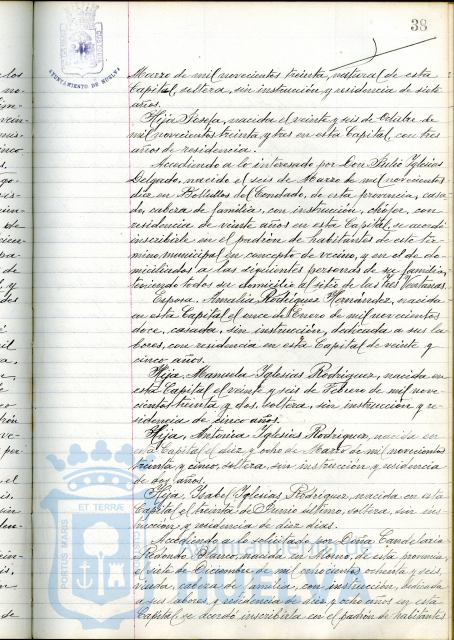 38
AYUNTAMIENTO DE HUELVA
Marzo de mil novecientos treinta, natural de esta
Capital, soltera, sin instrucción y residencia de siete
años.
Hija Josefa, nacida el veinte y seis de Octubre de
mil novecientos treinta y tres en esta Capital, con tres
años de residencia.
Accediendo a lo interesado por Don Julio Iglesias
Delgado, nacido el seis de Marzo de mil novecientos
diez en Bollullos del Condado, de esta provincia, casa-
do, cabeza de familia, con instrucción, chófer, con
residencia de veinte años en esta Capital, se acordó
inscribirle en el padrón de habitantes de este tér-
mino municipal en concepto de vecino, y en el de do-
miciliados a las siguientes personas de su familia,
teniendo todos su domicilio al sitio de las Tres Ventanas.
Esposa, Amalia Rodríguez Hernández, nacida
en esta Capital el once de Enero de mil novecientos
doce, casada, sin instrucción, dedicada a sus la-
bores, con residencia en esta Capital de veinte y
cinco años.
Hija, Manuela Iglesias Rodríguez, nacida en
esta Capital el veinte y seis de Febrero de mil nove-
cientos treinta y dos, soltera, sin instrucción, y re-
sidencia de cinco años.
Hija, Antonia Iglesias Rodríguez, nacida en
esta Capital el diez y ocho de Marzo de mil novecientos
treinta y cinco, soltera, sin instrucción y residencia
de dos años.
Hija, Isabel Iglesias Rodríguez, nacida en esta
Capital el treinta de Junio último, soltera, sin ins-
trucción, y residencia de diez días.
Accediendo a lo solicitado por Doña Candelaria
Redondo Barro, nacida en de esta provincia,
el siete de Diciembre de mil ochocientos ochenta y seis,
viuda, cabeza de familia, con instrucción, dedicada
a sus labores, y residencia de diez y ocho años en esta
Capital, se acordó inscribirla en el padrón de habitantes
PORTUS MARIS ET TERRÆ
HUELVA